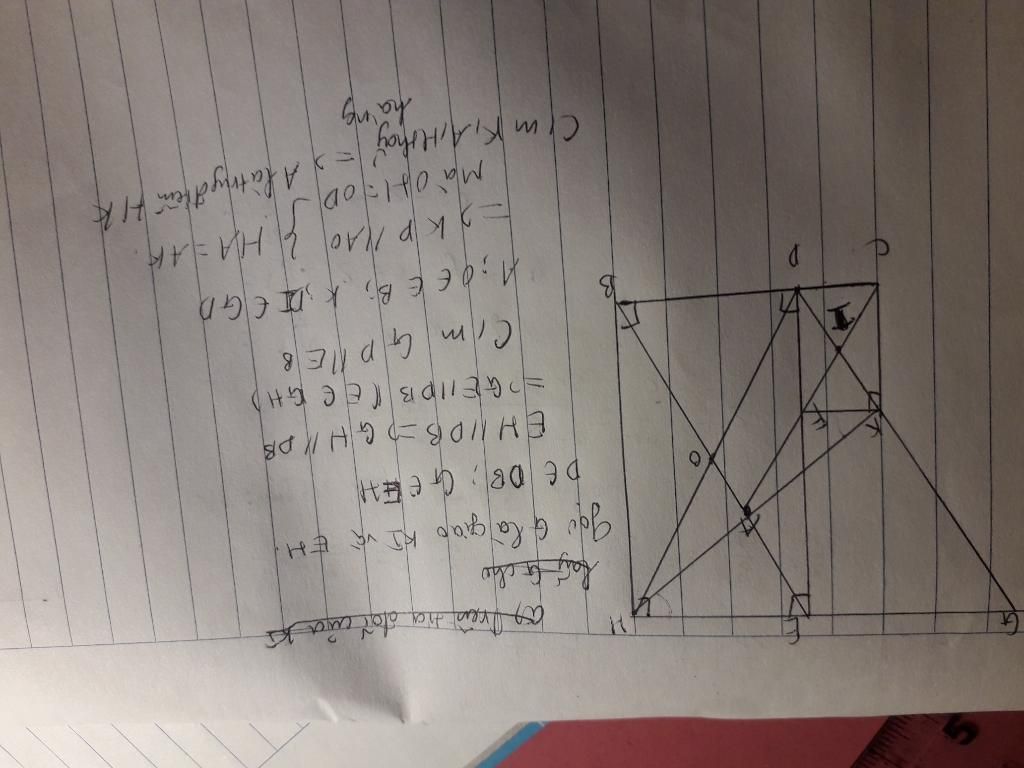 a) Trên tia đối của KI
Lấy G cho
gọi G là giao KI và EH.
D ∈ DB; G ∈ EH
EH // DB => GH // DB
=> GE // DB (E ∈ GH)
C/m GD // EB
A; O ∈ EB; K; I ∈ GD
=> KD // AO
Mà OH = OD
} HA = AK
=> A là trung điểm HK
C/m K, A, H thẳng
hàng
H
E
G
O
F
K
I
B
D
C
5